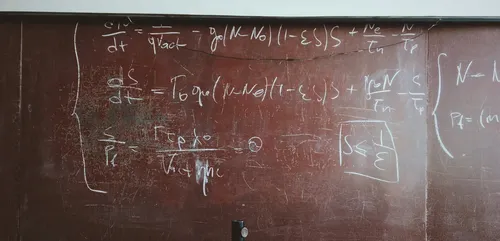 dN/dt = 1/qVact - g₀(N-N₀)(1-εS)S + Ne/τn - N/τp
dS/dt = Γ₀g₀(N-N₀)(1-εS)S + ΓβN/τn - S/τp
S/Pf = Γτpλ₀/Vactηhc = ϑ
S ≤ 1/ε
N - N
Pf = (m